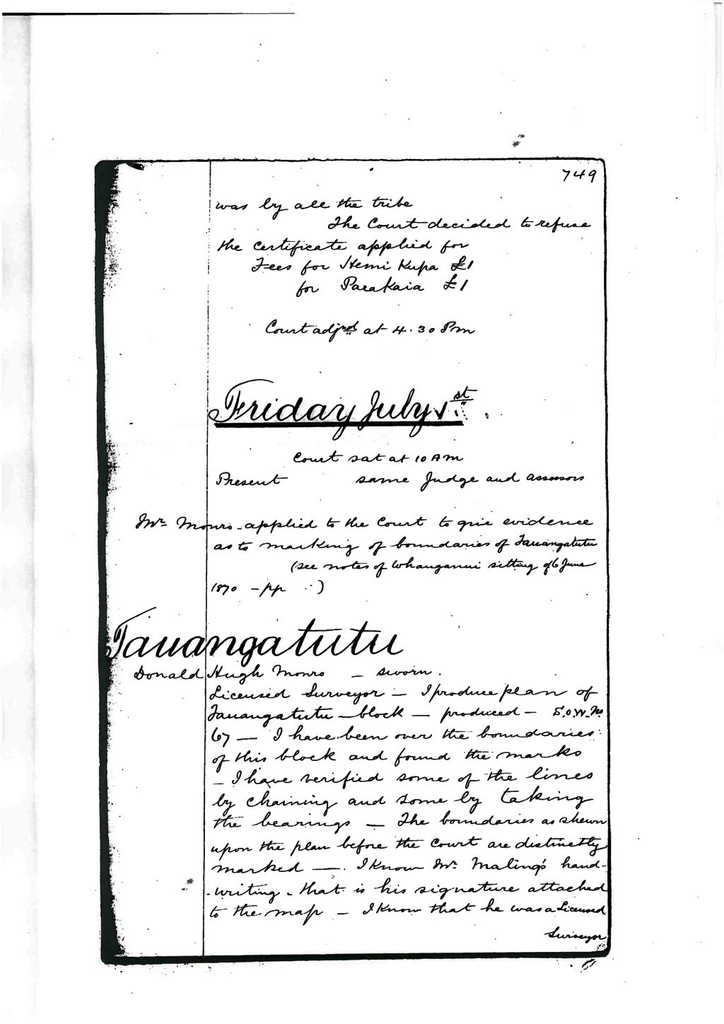 749
was by all the tribe
The Court decided to refuse
the certificate applied for
Fees for Hemi Kupa £1
for Parakaia £1
Court adjrnd at 4.30 Pm
Friday July 1st
Court sat at 10 Am
Present same Judge and assessors
Mr Monro - applied to the Court to give evidence
as to marking of boundaries of Tauangatutu
(see notes of Whanganui sitting of 6 June
1870 - pp )
Tauangatutu
Donald Hugh Monro - sworn.
Licensed Surveyor - I produce plan of
Tauangatutu - block - produced - S.O.W. No
67 - I have been over the boundaries
of this block and found the marks
- I have verified some of the lines
by chaining and some by taking
the bearings - The boundaries as shewn
upon the plan before the Court are distinctly
marked - I know Mr Maling's hand-
-writing - that is his signature attached
to the map - I know that he was a Licensed
Surveyor